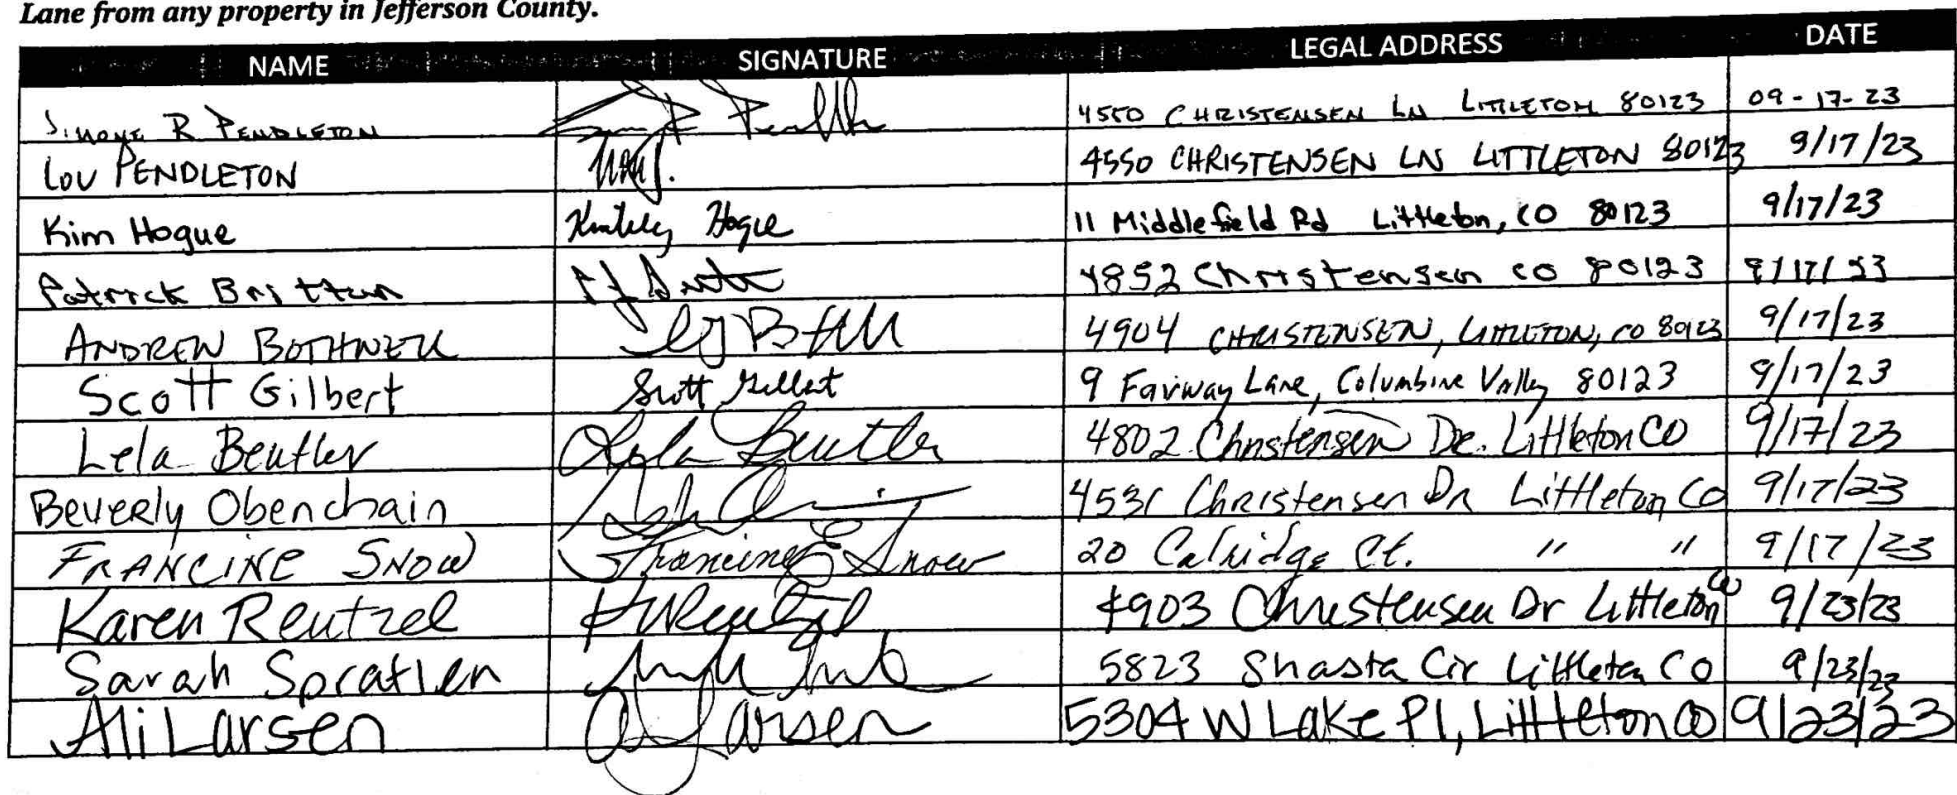 Lane from any property in Jefferson County.
NAME SIGNATURE LEGAL ADDRESS DATE
Simone R PENDLETON 4550 CHRISTENSEN LN LITTLETON 80123 09-17-23
LOU PENDLETON 4550 CHRISTENSEN LN LITTLETON 80123 9/17/23
Kim Hogue Kimberly Hogue 11 Middlefield Rd Littleton, CO 80123 9/17/23
Patrick Britton 4852 Christensen CO 80123 9/17/23
ANDREW BOTHNER 4904 CHRISTENSEN, LITTLETON, CO 80123 9/17/23
Scott Gilbert Scott Gilbert 9 Fairway Lane, Columbine Valley 80123 9/17/23
Lela Beutler Lela Beutler 4802 Christensen Dr. Littleton CO 9/17/23
Beverly Obenchain 4531 Christensen Dr Littleton CO 9/17/23
FRANCINE SNOW Francine E Snow 20 Calridge Ct. " " 9/17/23
Karen Reutzel K Reutzel 4903 Christensen Dr Littleton CO 9/23/23
Sarah Spratlen 5823 Shasta Cir Littleton CO 9/23/23
Ali Larsen A Larsen 5304 W Lake Pl, Littleton CO 9/23/23